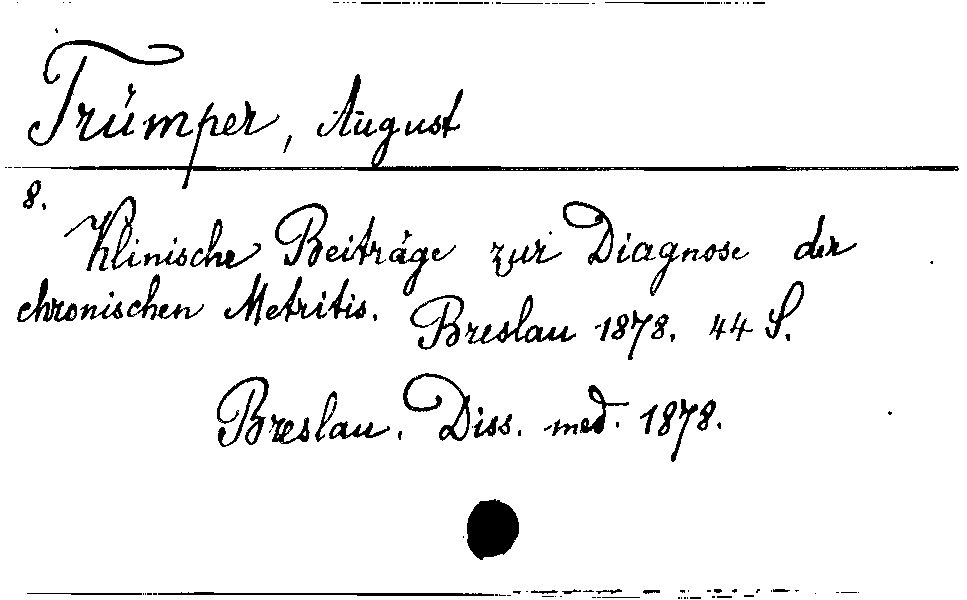 Trümper, August
8.
Klinische Beiträge zur Diagnose der
chronischen Metritis. Breslau 1878. 44 S.
Breslau. Diss. med. 1878.